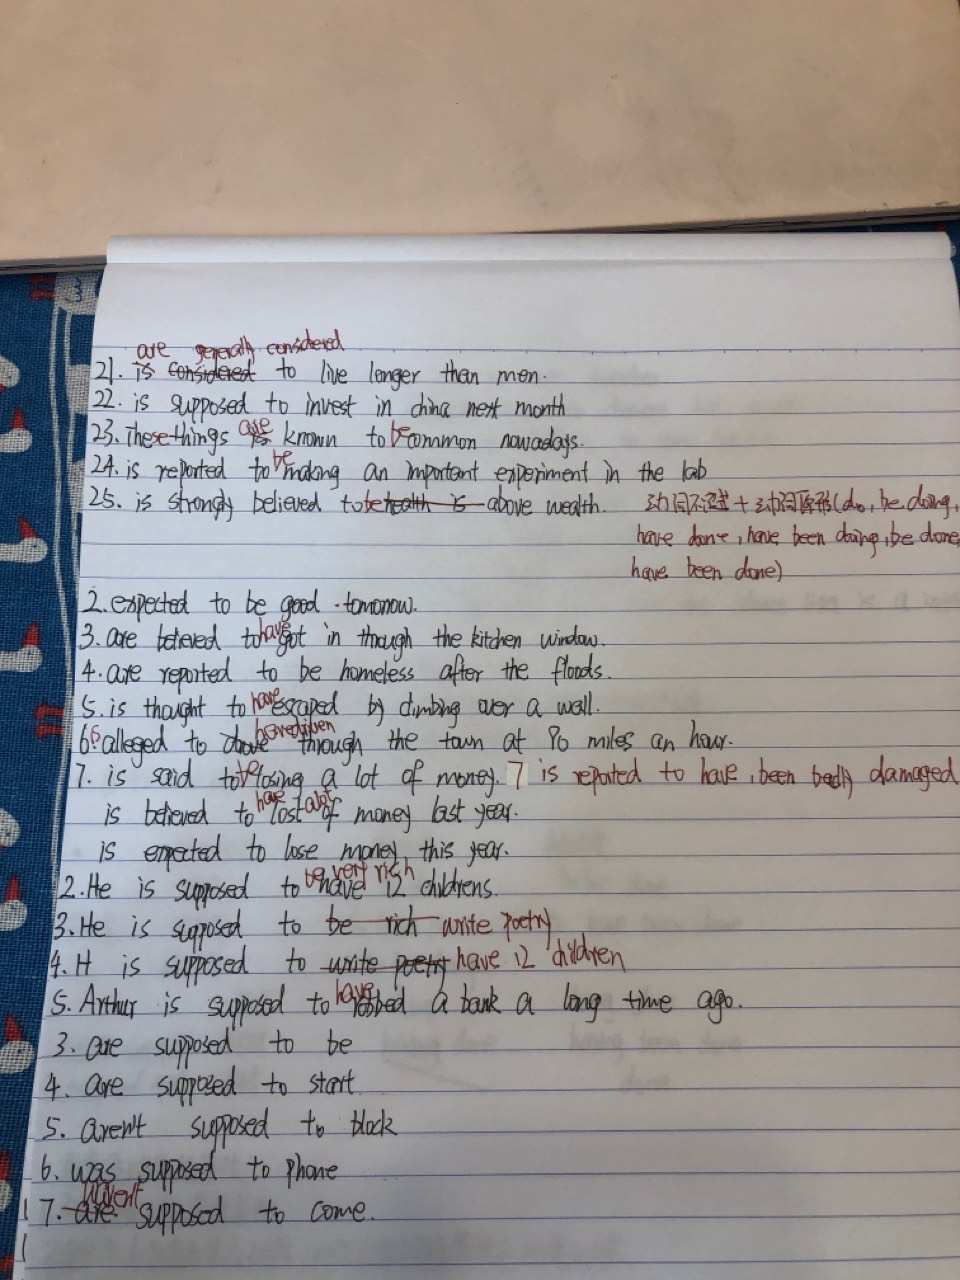 are generally considered
21. is considered to live longer than men.
22. is supposed to invest in china next month
23. These things are is known to be common nowadays.
24. is reported to be making an important experiment in the lab
25. is strongly believed to be health is above wealth. 动词不定式 + 动词原形(do, be doing,
have done, have been doing, be done,
have been done)
2. expected to be good tomorrow.
3. are believed to have got in through the kitchen window.
4. are reported to be homeless after the floods.
5. is thought to have escaped by climbing over a wall.
6. is alleged to drove have driven through the town at 80 miles an hour.
7. is said to be losing a lot of money. 7 is reported to have been badly damaged
is believed to have lost a lot of money last year.
is expected to lose money this year.
2. He is supposed to have be very rich 12 childrens.
3. He is supposed to be rich write poetry
4. H is supposed to write poetry have 12 children
5. Arthur is supposed to have robbed a bank a long time ago.
3. are supposed to be
4. are supposed to start
5. aren't supposed to block
6. was supposed to phone
7. are weren't supposed to come.